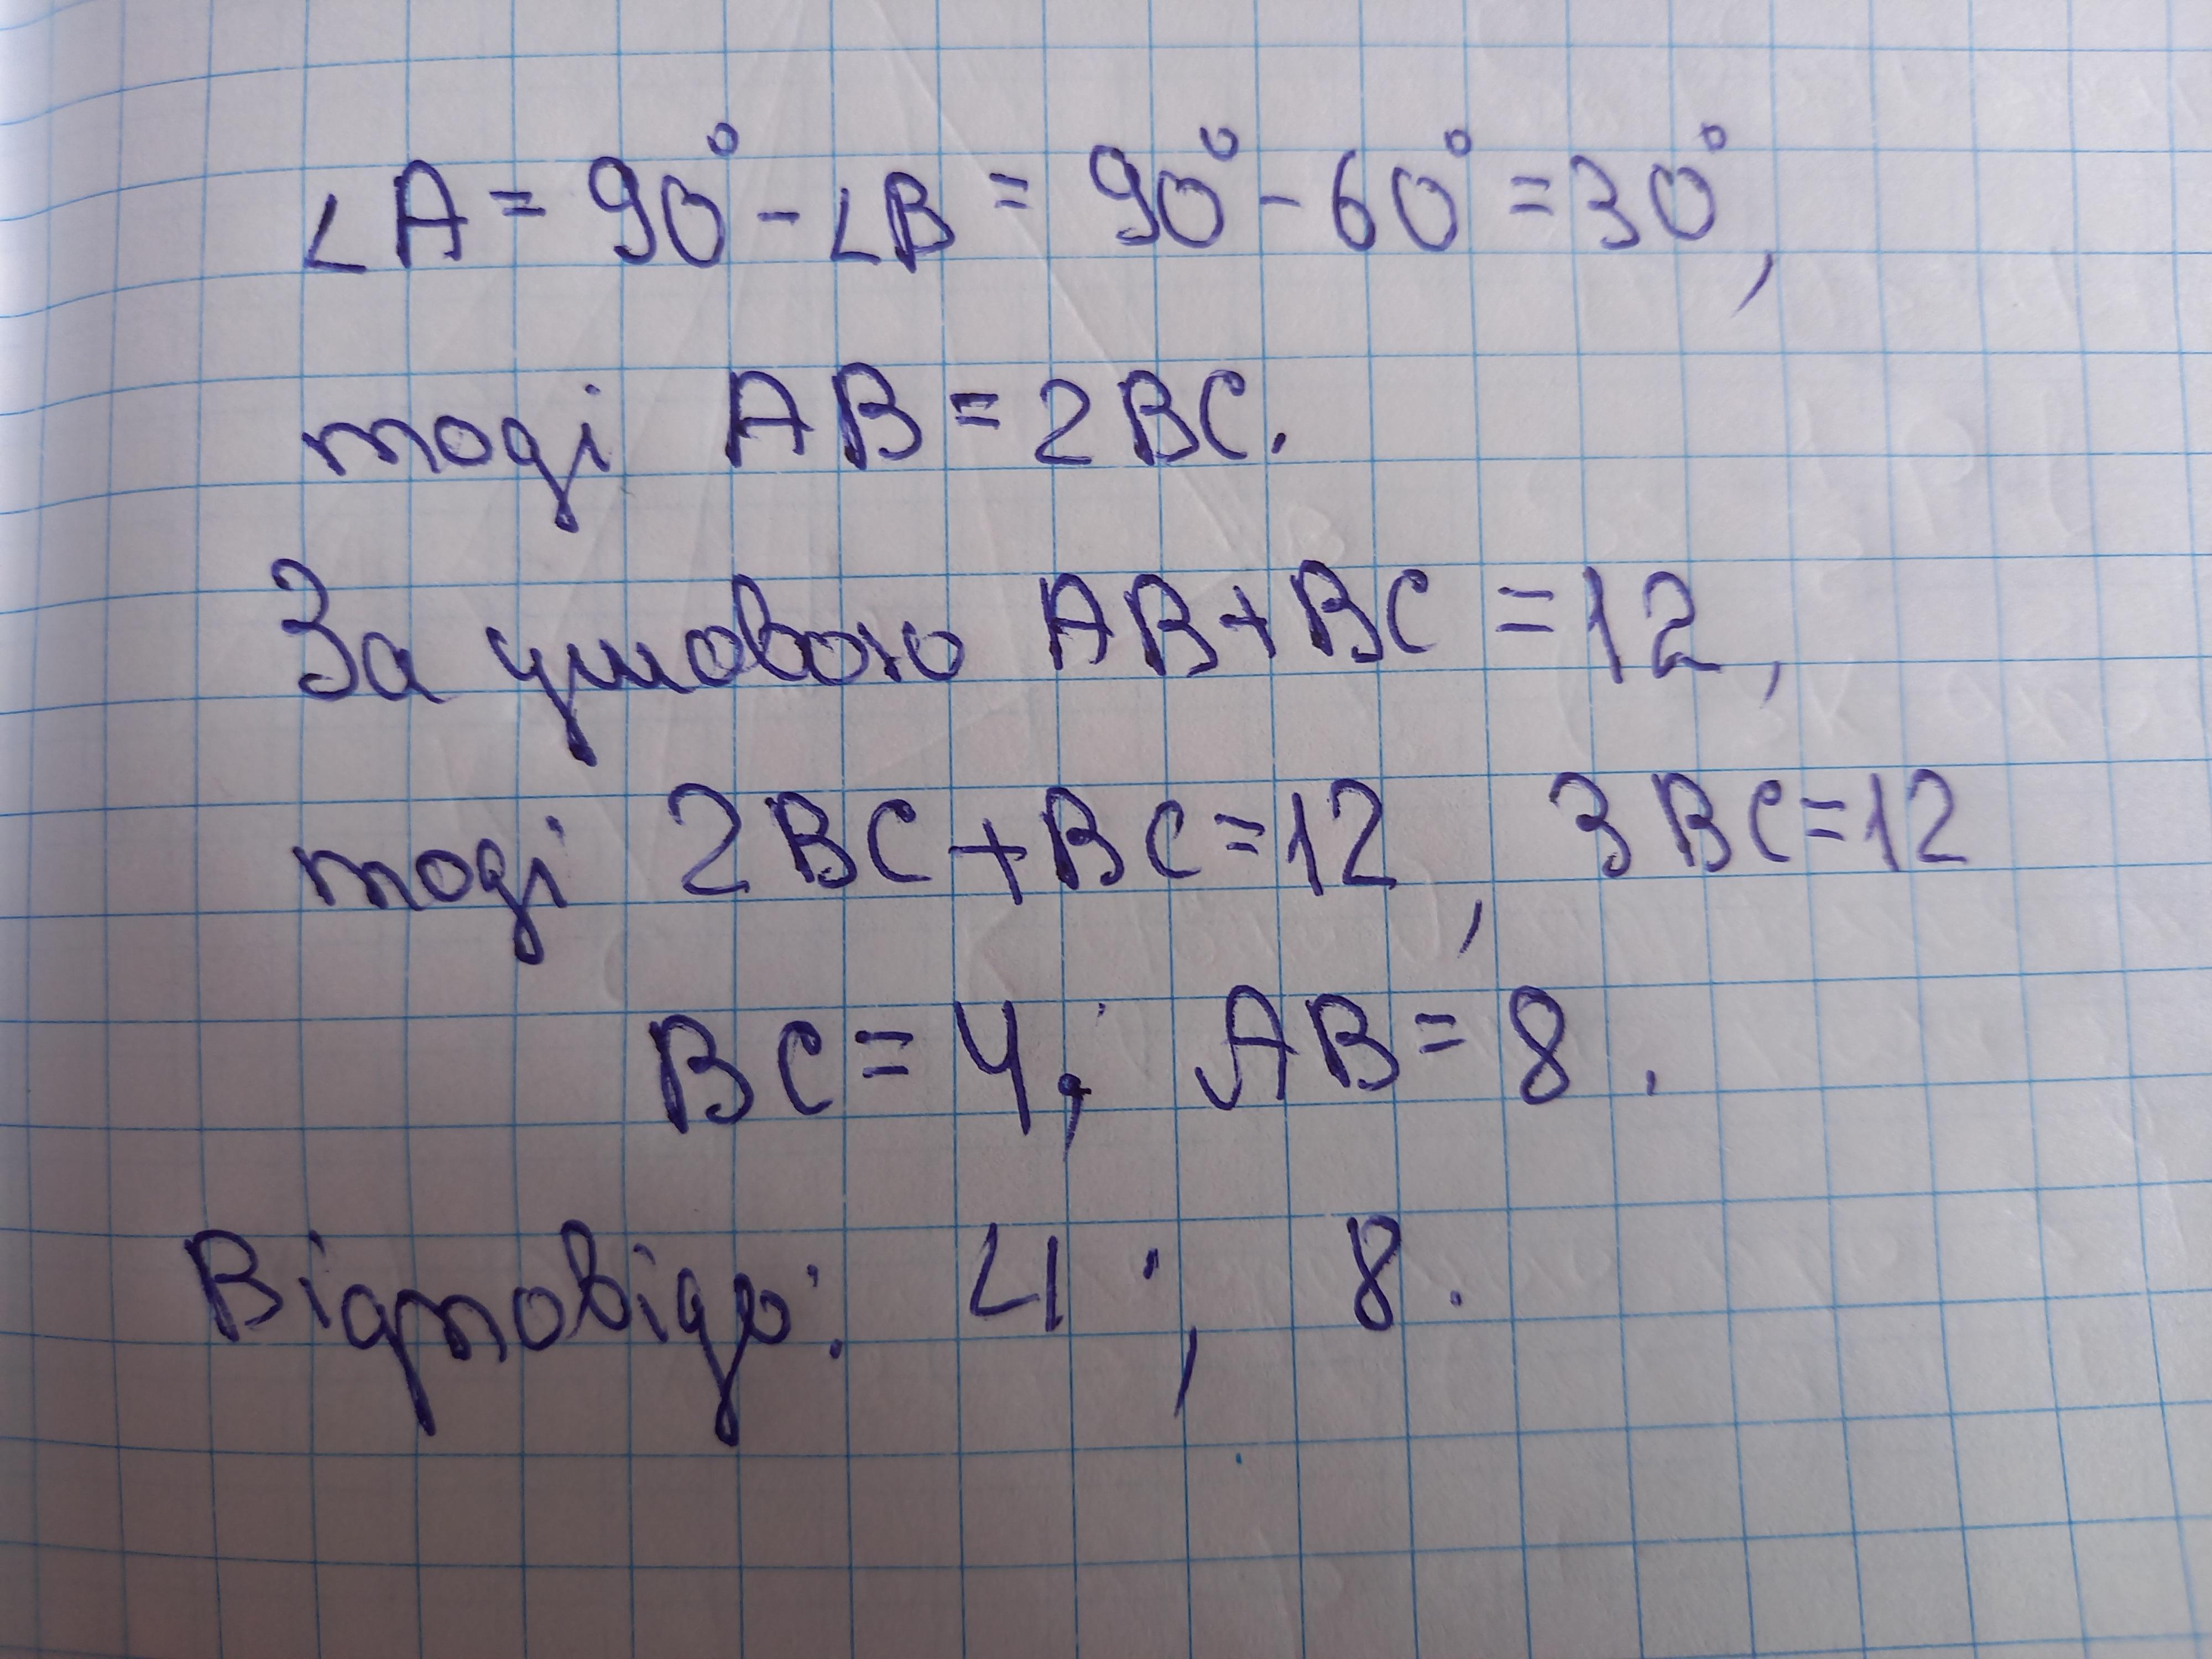 ∠A = 90° - ∠B = 90° - 60° = 30°,
тоді AB = 2BC.
За умовою AB + BC = 12,
тоді 2BC + BC = 12, 3BC = 12
BC = 4; AB = 8.
Відповідь: 4; 8.